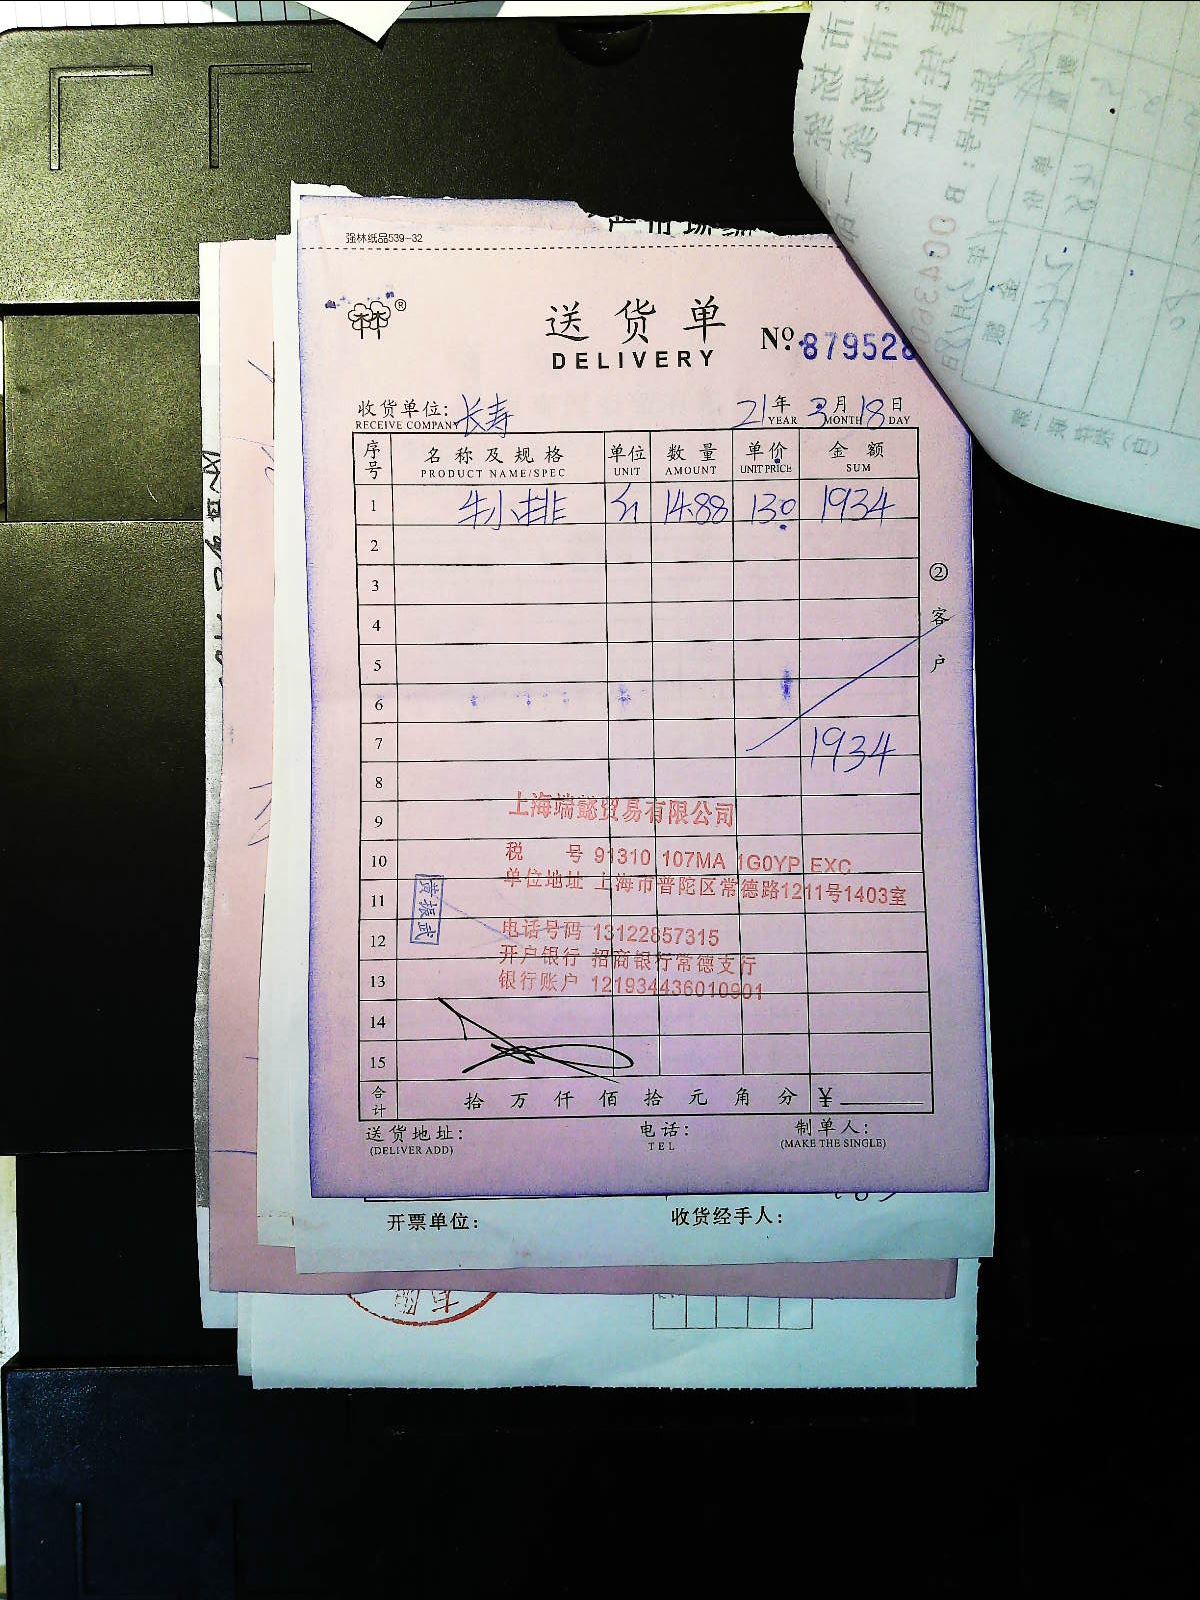 强林纸品539-32
®
送货单
DELIVERY
No. 879528
收货单位: 长寿 21年 3月 18日
RECEIVE COMPANY YEAR MONTH DAY
序号 名称及规格 单位 数量 单价 金额
PRODUCT NAME/SPEC UNIT AMOUNT UNIT PRICE SUM
1 牛小排 14.88 130 1934
2
3
4
5
6
7 1934
8
9
10
11
12
13
14
15
②客户
上海端懿贸易有限公司
税 号 91310 107MA 1G0YP EXC
单位地址 上海市普陀区常德路1211号1403室
黄振武
电话号码 13122857315
开户银行 招商银行常德支行
银行账户 121934436010901
合计 拾 万 仟 佰 拾 元 角 分 ¥
送货地址: 电话: 制单人:
(DELIVER ADD) TEL (MAKE THE SINGLE)
开票单位: 收货经手人: